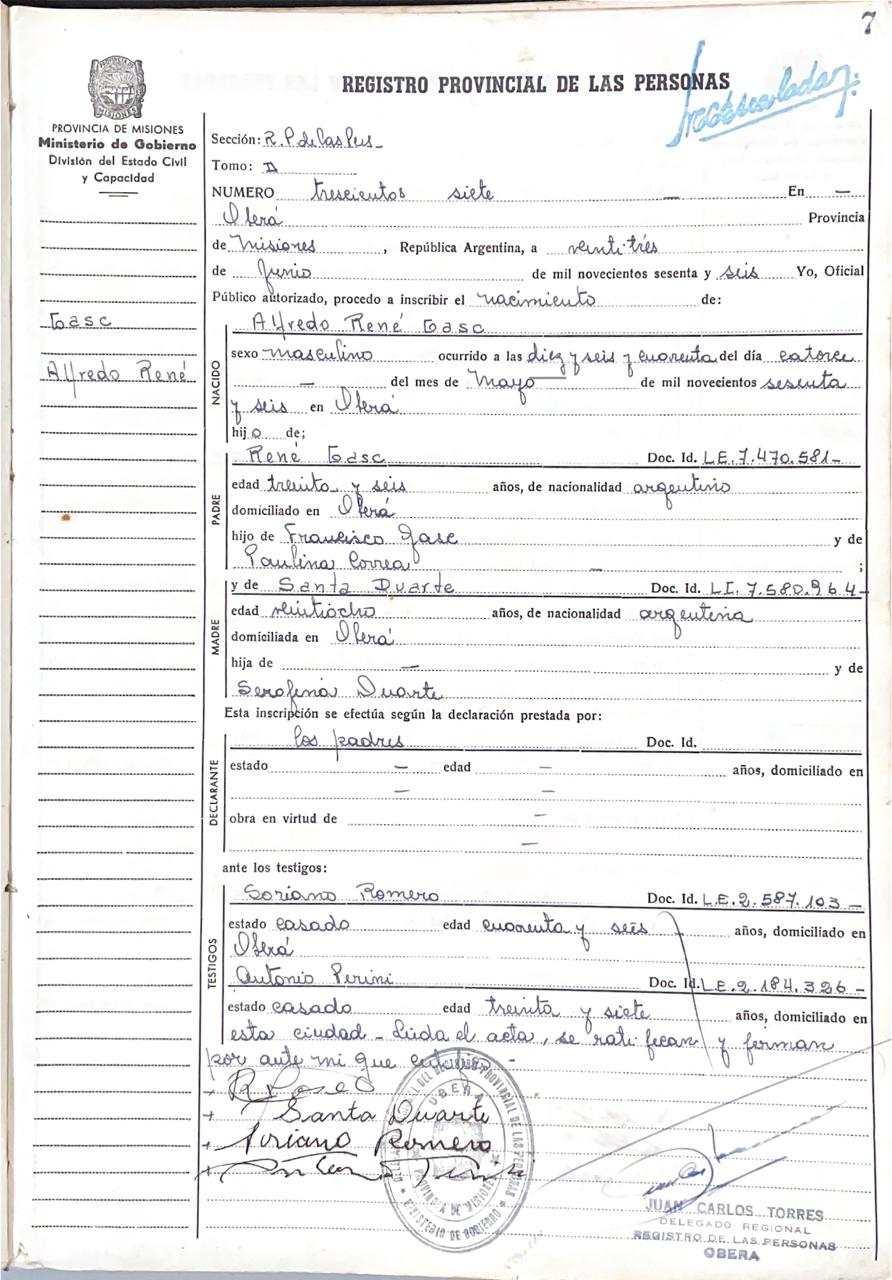 7
REGISTRO PROVINCIAL DE LAS PERSONAS
PROVINCIA DE MISIONES
Ministerio de Gobierno
División del Estado Civil
y Capacidad
Sección: R.P. de Las Pers
Tomo: II
NUMERO trescientos siete — En —
Oberá Provincia
de Misiones, República Argentina, a veintitrés
de Junio de mil novecientos sesenta y seis Yo, Oficial
Público autorizado, procedo a inscribir el nacimiento de:
Gasc
Alfredo René
NACIDO
Alfredo René Gasc
sexo masculino ocurrido a las diez y seis y cuarenta del día catorce
— del mes de Mayo — de mil novecientos sesenta
y seis en Oberá
hijo de;
PADRE
René Gasc Doc. Id. L.E. 7.470.581-
edad treinta y seis años, de nacionalidad argentino
domiciliado en Oberá
hijo de Francisco Gasc y de
Paulina Correa — ;
MADRE
y de Santa Duarte Doc. Id. L.I. 7.580.964-
edad veintiocho años, de nacionalidad argentina
domiciliada en Oberá
hija de — y de
Serafina Duarte
Esta inscripción se efectúa según la declaración prestada por:
DECLARANTE
los padres Doc. Id.
estado — edad — años, domiciliado en
— —
obra en virtud de —
—
ante los testigos:
TESTIGOS
Soriano Romero Doc. Id. L.E. 2.587.103-
estado casado edad cuarenta y seis años, domiciliado en
Oberá
Antonio Perini Doc. Id. L.E. 2.184.326-
estado casado edad treinta y siete años, domiciliado en
esta ciudad - Leida el acta, se ratifican y firman
por ante mi que
Santa Duarte
Soriano Romero
OBERA
PROVINCIA DE MISIONES
MINISTERIO DE GOBIERNO
JUAN CARLOS TORRES
DELEGADO REGIONAL
REGISTRO DE LAS PERSONAS
OBERA